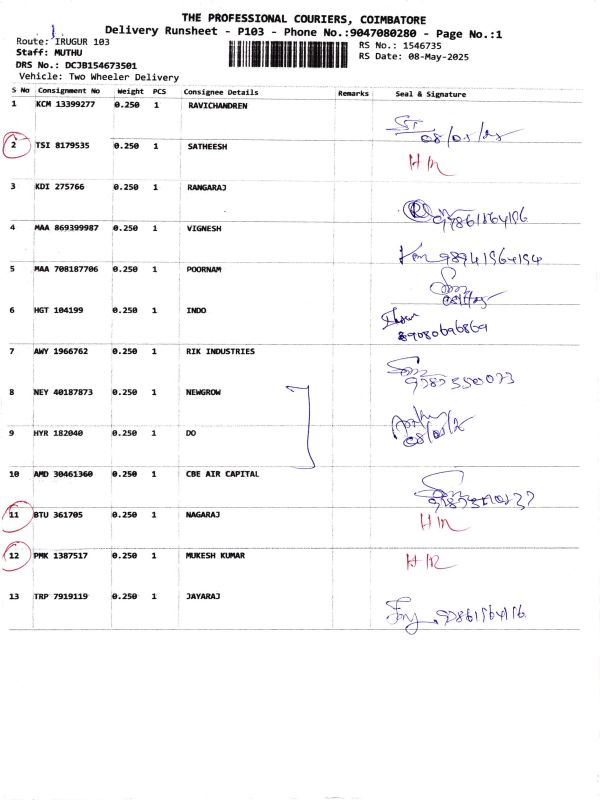 THE PROFESSIONAL COURIERS, COIMBATORE
Delivery Runsheet - P103 - Phone No.:9047080280 - Page No.:1
Route: IRUGUR 103
RS No.: 1546735
Staff: MUTHU
RS Date: 08-May-2025
DRS No.: DCJB154673501
Vehicle: Two Wheeler Delivery
S No Consignment No Weight PCS Consignee Details Remarks Seal & Signature
1 KCM 13399277 0.250 1 RAVICHANDREN
08/05/25
2 TSI 8179535 0.250 1 SATHEESH
3 KDI 275766 0.250 1 RANGARAJ
4 MAA 869399987 0.250 1 VIGNESH
5 MAA 708187706 0.250 1 POORNAM
6 HGT 104199 0.250 1 INDO
89080696869
7 AWY 1966762 0.250 1 RIK INDUSTRIES
8 NEY 40187873 0.250 1 NEWGROW
9 HYR 182040 0.250 1 DO
10 AMD 30461360 0.250 1 CBE AIR CAPITAL
11 BTU 361705 0.250 1 NAGARAJ
12 PMK 1387517 0.250 1 MUKESH KUMAR
13 TRP 7919119 0.250 1 JAYARAJ